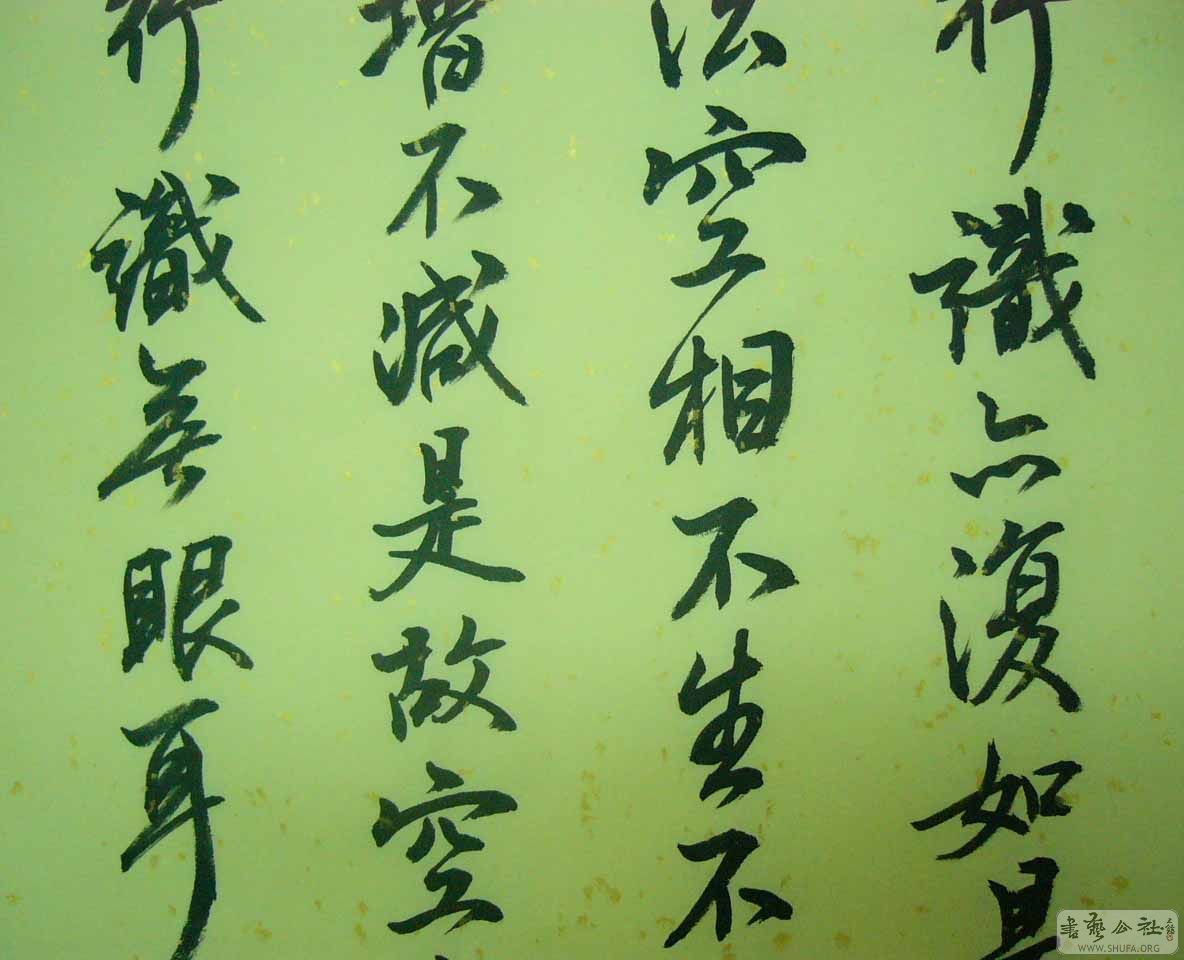 行識亦復如是
法空相不生不
增不減是故空
行識無眼耳
書藝公社
WWW.SHUFA.ORG